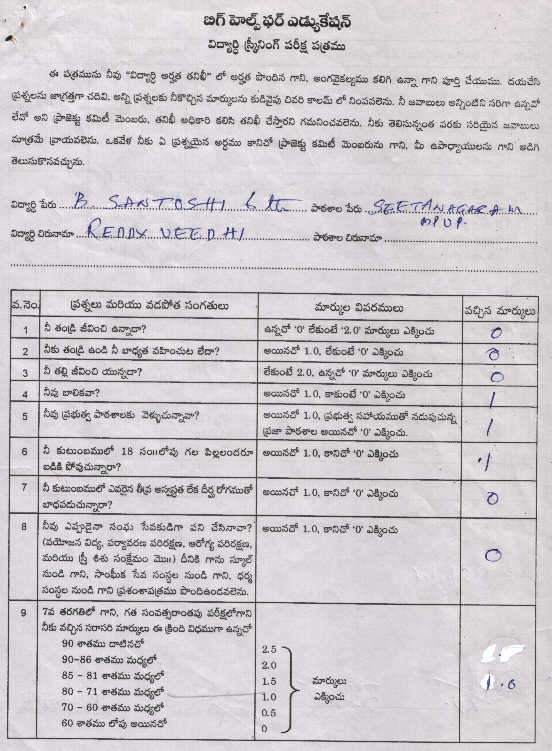 బిగ్ హెల్ప్ ఫర్ ఎడ్యుకేషన్
విద్యార్థి స్క్రీనింగ్ పరీక్ష పత్రము
ఈ పత్రమును నీవు "విద్యార్థి అర్హత తనిఖీ" లో అర్హత పొందిన గాని, అంగవైకల్యము కలిగి ఉన్నా గాని పూర్తి చేయుము. దయచేసి
ప్రశ్నలను జాగ్రత్తగా చదివి, అన్ని ప్రశ్నలకు నీకొచ్చిన మార్కులను కుడివైపు చివరి కాలమ్ లో నింపవలెను. నీ జవాబులు అన్నింటిని సరిగా ఉన్నవో
లేవో అని ప్రాజెక్టు కమిటీ మెంబరు, తనిఖీ అధికారి కలిసి తనిఖీ చేస్తారని గమనించవలెను. నీకు తెలిసినంత వరకు సరియైన జవాబులు
మాత్రమే వ్రాయవలెను. ఒకవేళ నీకు ఏ ప్రశ్నయైన అర్థము కానిచో ప్రాజెక్టు కమిటీ మెంబరును గాని, మీ ఉపాధ్యాయులను గాని అడిగి
తెలుసుకొనవచ్చును.
విద్యార్థి పేరు B. SANTOSHI పాఠశాల పేరు SEETANAGARAM
MPUP.
విద్యార్థి చిరునామా REDDY VEEDHI పాఠశాల చిరునామా
వ.నెం. ప్రశ్నలు మరియు వడపోత సంగతులు మార్కుల వివరములు వచ్చిన మార్కులు
1 నీ తండ్రి జీవించి ఉన్నాడా? ఉన్నచో '0' లేకుంటే '2.0' మార్కులు ఎక్కించు 0
2 నీకు తండ్రి ఉండి నీ బాధ్యత వహించుట లేదా? అయినచో 1.0, లేకుంటే '0' ఎక్కించు 0
3 నీ తల్లి జీవించి యున్నదా? లేకుంటే 2.0, ఉన్నచో '0' మార్కులు ఎక్కించు 0
4 నీవు బాలికవా? అయినచో 1.0, కాకుంటే '0' ఎక్కించు 1
5 నీవు ప్రభుత్వ పాఠశాలకు వెళ్ళుచున్నావా? అయినచో 1.0, ప్రభుత్వ సహాయముతో నడుపుచున్న
ప్రజా పాఠశాల అయినచో '0' ఎక్కించు. 1
6 నీ కుటుంబములో 18 సం॥లోపు గల పిల్లలందరూ
బడికి పోవుచున్నారా? అయినచో 1.0, కానిచో '0' ఎక్కించు 1
7 నీ కుటుంబములో ఎవరైన తీవ్ర అస్వస్థత లేక దీర్ఘరోగముతో
బాధపడుచున్నారా? అయినచో 1.0, కానిచో '0' ఎక్కించు 0
8 నీవు ఎప్పుడైనా సంఘ సేవకుడిగా పని చేసినావా? అయినచో 1.0, కానిచో '0' ఎక్కించు
(వయోజన విద్య, పర్యావరణ పరిరక్షణ, ఆరోగ్య పరిరక్షణ,
మరియు స్త్రీ శిశు సంక్షేమం మొ॥) దీనికి గాను స్కూల్ 0
నుండి గాని, సాంఘీక సేవ సంస్థల నుండి గాని, ధర్మ
సంస్థల నుండి గాని ప్రశంశాపత్రము పొందిఉండవలెను.
9 7వ తరగతిలో గాని, గత సంవత్సరాంతపు పరీక్షలోగాని
నీకు వచ్చిన సరాసరి మార్కులు ఈ క్రింది విధముగా ఉన్నచో
90 శాతము దాటినచో 2.5
90-86 శాతము మధ్యలో 2.0
85 - 81 శాతము మధ్యలో 1.5 మార్కులు 1.0
80 - 71 శాతము మధ్యలో 1.0 ఎక్కించు
70 - 60 శాతము మధ్యలో 0.5
60 శాతము లోపు అయినచో 0